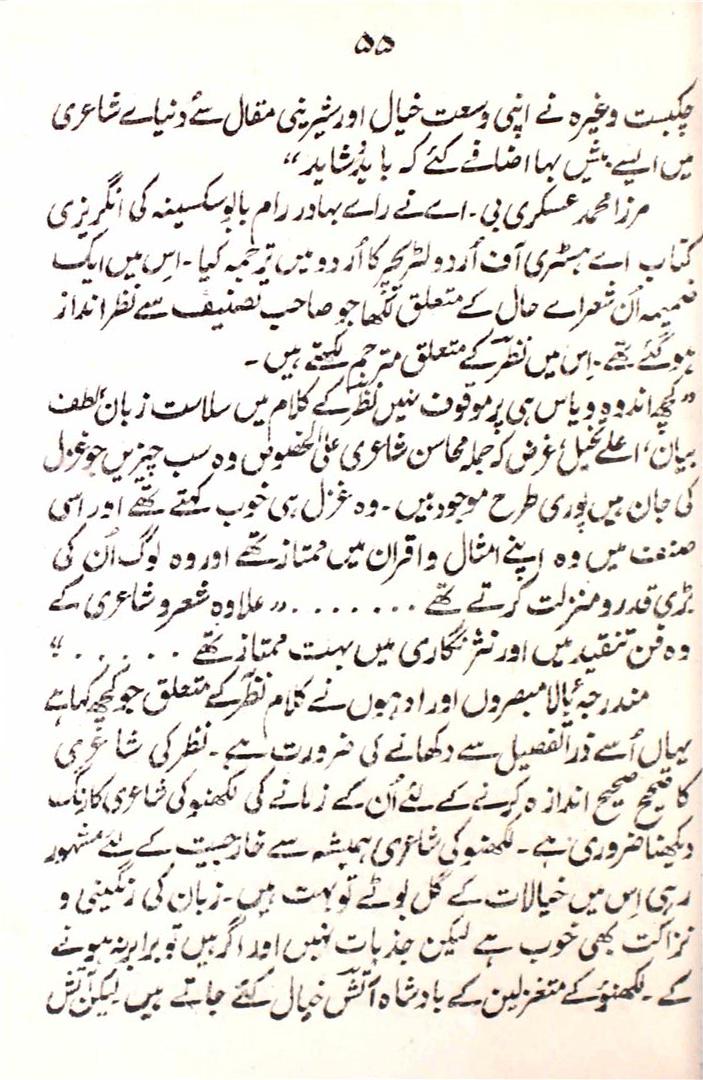 ۵۵
چکبست وغیرہ نے اپنی وسعت خیال اور شیرینی مقال سے دنیاے شاعری
میں ایسے بیش بہا اضافے کئے کہ باید و شاید"
مرزا محمد عسکری بی۔اے نے راے بہادر رام بابو سکسینہ کی انگریزی
کتاب اے ہسٹری آف اُردو لٹریچر کا اُردو میں ترجمہ کیا۔ اِس میں ایک
ضمیمہ اُن شعراے حال کے متعلق لکھا جو صاحب تصنیف سے نظر انداز
ہو گئے تھے۔ اِس میں نظرؔ کے متعلق مترجم لکھتے ہیں۔
"کچھ اندوہ و یاس ہی پر موقوف نہیں نظرؔ کے کلام میں سلاست زبان، لطف
بیان، اعلےٰ تخیل، غرض کہ جملہ محاسن شاعری علی الخصوص وہ سب چیزیں جو غزل
کی جان ہیں پوری طرح موجود ہیں۔ وہ غزل ہی خوب کہتے تھے اور اسی
صنف میں وہ اپنے امثال و اقران میں ممتاز تھے اور وہ لوگ اُن کی
بڑی قدر و منزلت کرتے تھے ....... "علاوہ شعر و شاعری کے
وہ فن تنقید میں اور نثر نگاری میں بہت ممتاز تھے ......"
مندرجہٴ بالا مبصروں اور ادیبوں نے کلام نظرؔ کے متعلق جو کچھ کہا ہے
یہاں اُسے ذرا تفصیل سے دکھانے کی ضرورت ہے۔ نظر کی شاعری
کا صحیح صحیح اندازہ کرنے کے لئے اُن کے زمانے کی لکھنؤ کی شاعری کا رنگ
دیکھنا ضروری ہے۔ لکھنؤ کی شاعری ہمیشہ سے خارجیت کے لئے مشہور
رہی اِس میں خیالات کے گل بوٹے تو بہت ہیں۔ زبان کی رنگینی و
نزاکت بھی خوب ہے لیکن جذبات نہیں اور اگر ہیں تو برابر نہ ہونے
کے۔ لکھنؤ کے متغزلین کے بادشاہ آتشؔ خیال کئے جاتے ہیں لیکن آتش